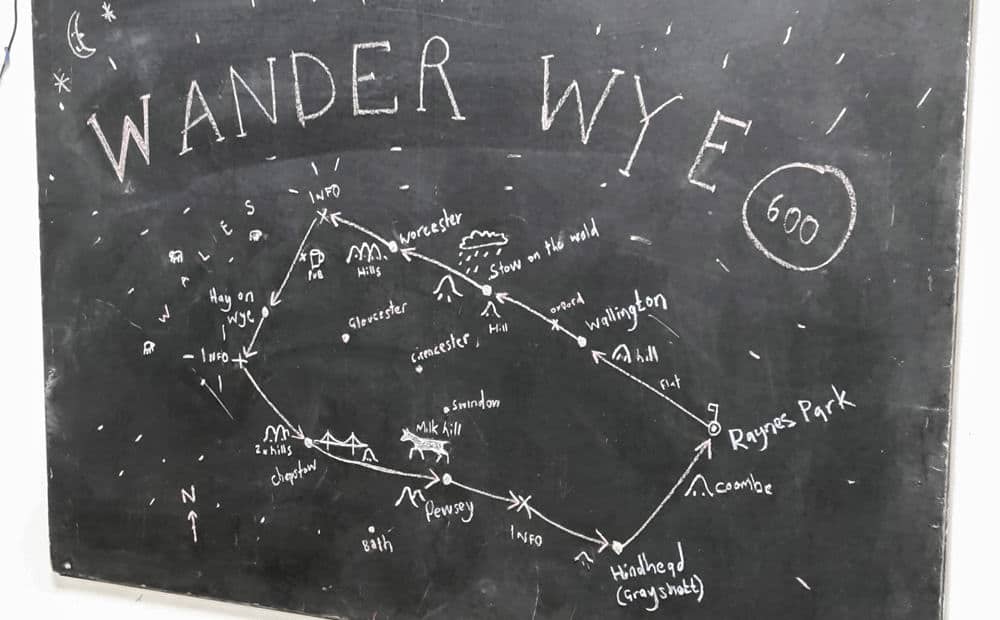 WANDER WYE
600
INFO
Worcester
Hills
Pub
Stow on the wold
Hill
WALES
Hay on
Wye
INFO
Gloucester
Cirencester
oxford
Wallington
hill
Flat
Swindon
Milk hill
Raynes Park
Coombe
2x hills
Chepstow
Pewsey
N
Bath
INFO
Hindhead
(Grayshott)